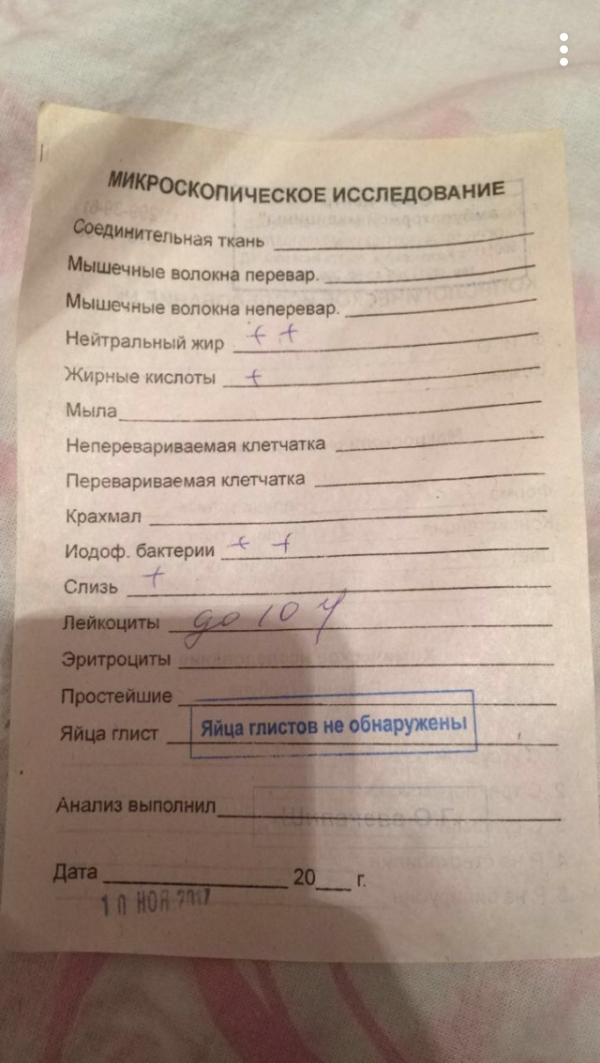 МИКРОСКОПИЧЕСКОЕ ИССЛЕДОВАНИЕ
Соединительная ткань
Мышечные волокна перевар.
Мышечные волокна неперевар.
Нейтральный жир + +
Жирные кислоты +
Мыла
Неперевариваемая клетчатка
Перевариваемая клетчатка
Крахмал
Иодоф. бактерии + +
Слизь +
Лейкоциты до 10
Эритроциты
Простейшие
Яйца глист Яйца глистов не обнаружены
Анализ выполнил
Дата 20 г.
10 НОЯ 2017